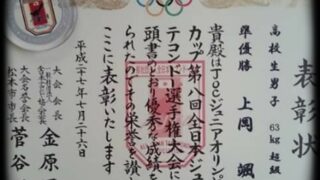 表彰状
高校生男子 63kg超級
準優勝 上岡 颯
貴殿はJOCジュニアオリンピック
カップ第八回全日本ジュニア
テコンドー選手権大会に
頭書のとおり優秀な成績を
られたのでその栄誉を讃
ここに表彰いたします
平成二十七年七月二十六日
大会会長
金原
大会名誉会長
松本市市長
菅谷